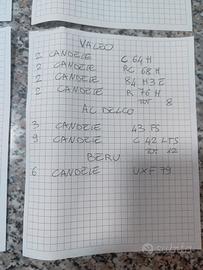 VALEO
2 CANDELE C 64 H
2 CANDELE RC 68 H
2 CANDELE B4 H3 E
2 CANDELE R 76 H
TOT 8
AC DELCO
3 CANDELE 43 FS
9 CANDELE C 42 LTS
TOT 12
BERU
6 CANDELE UXF 79
subito.it